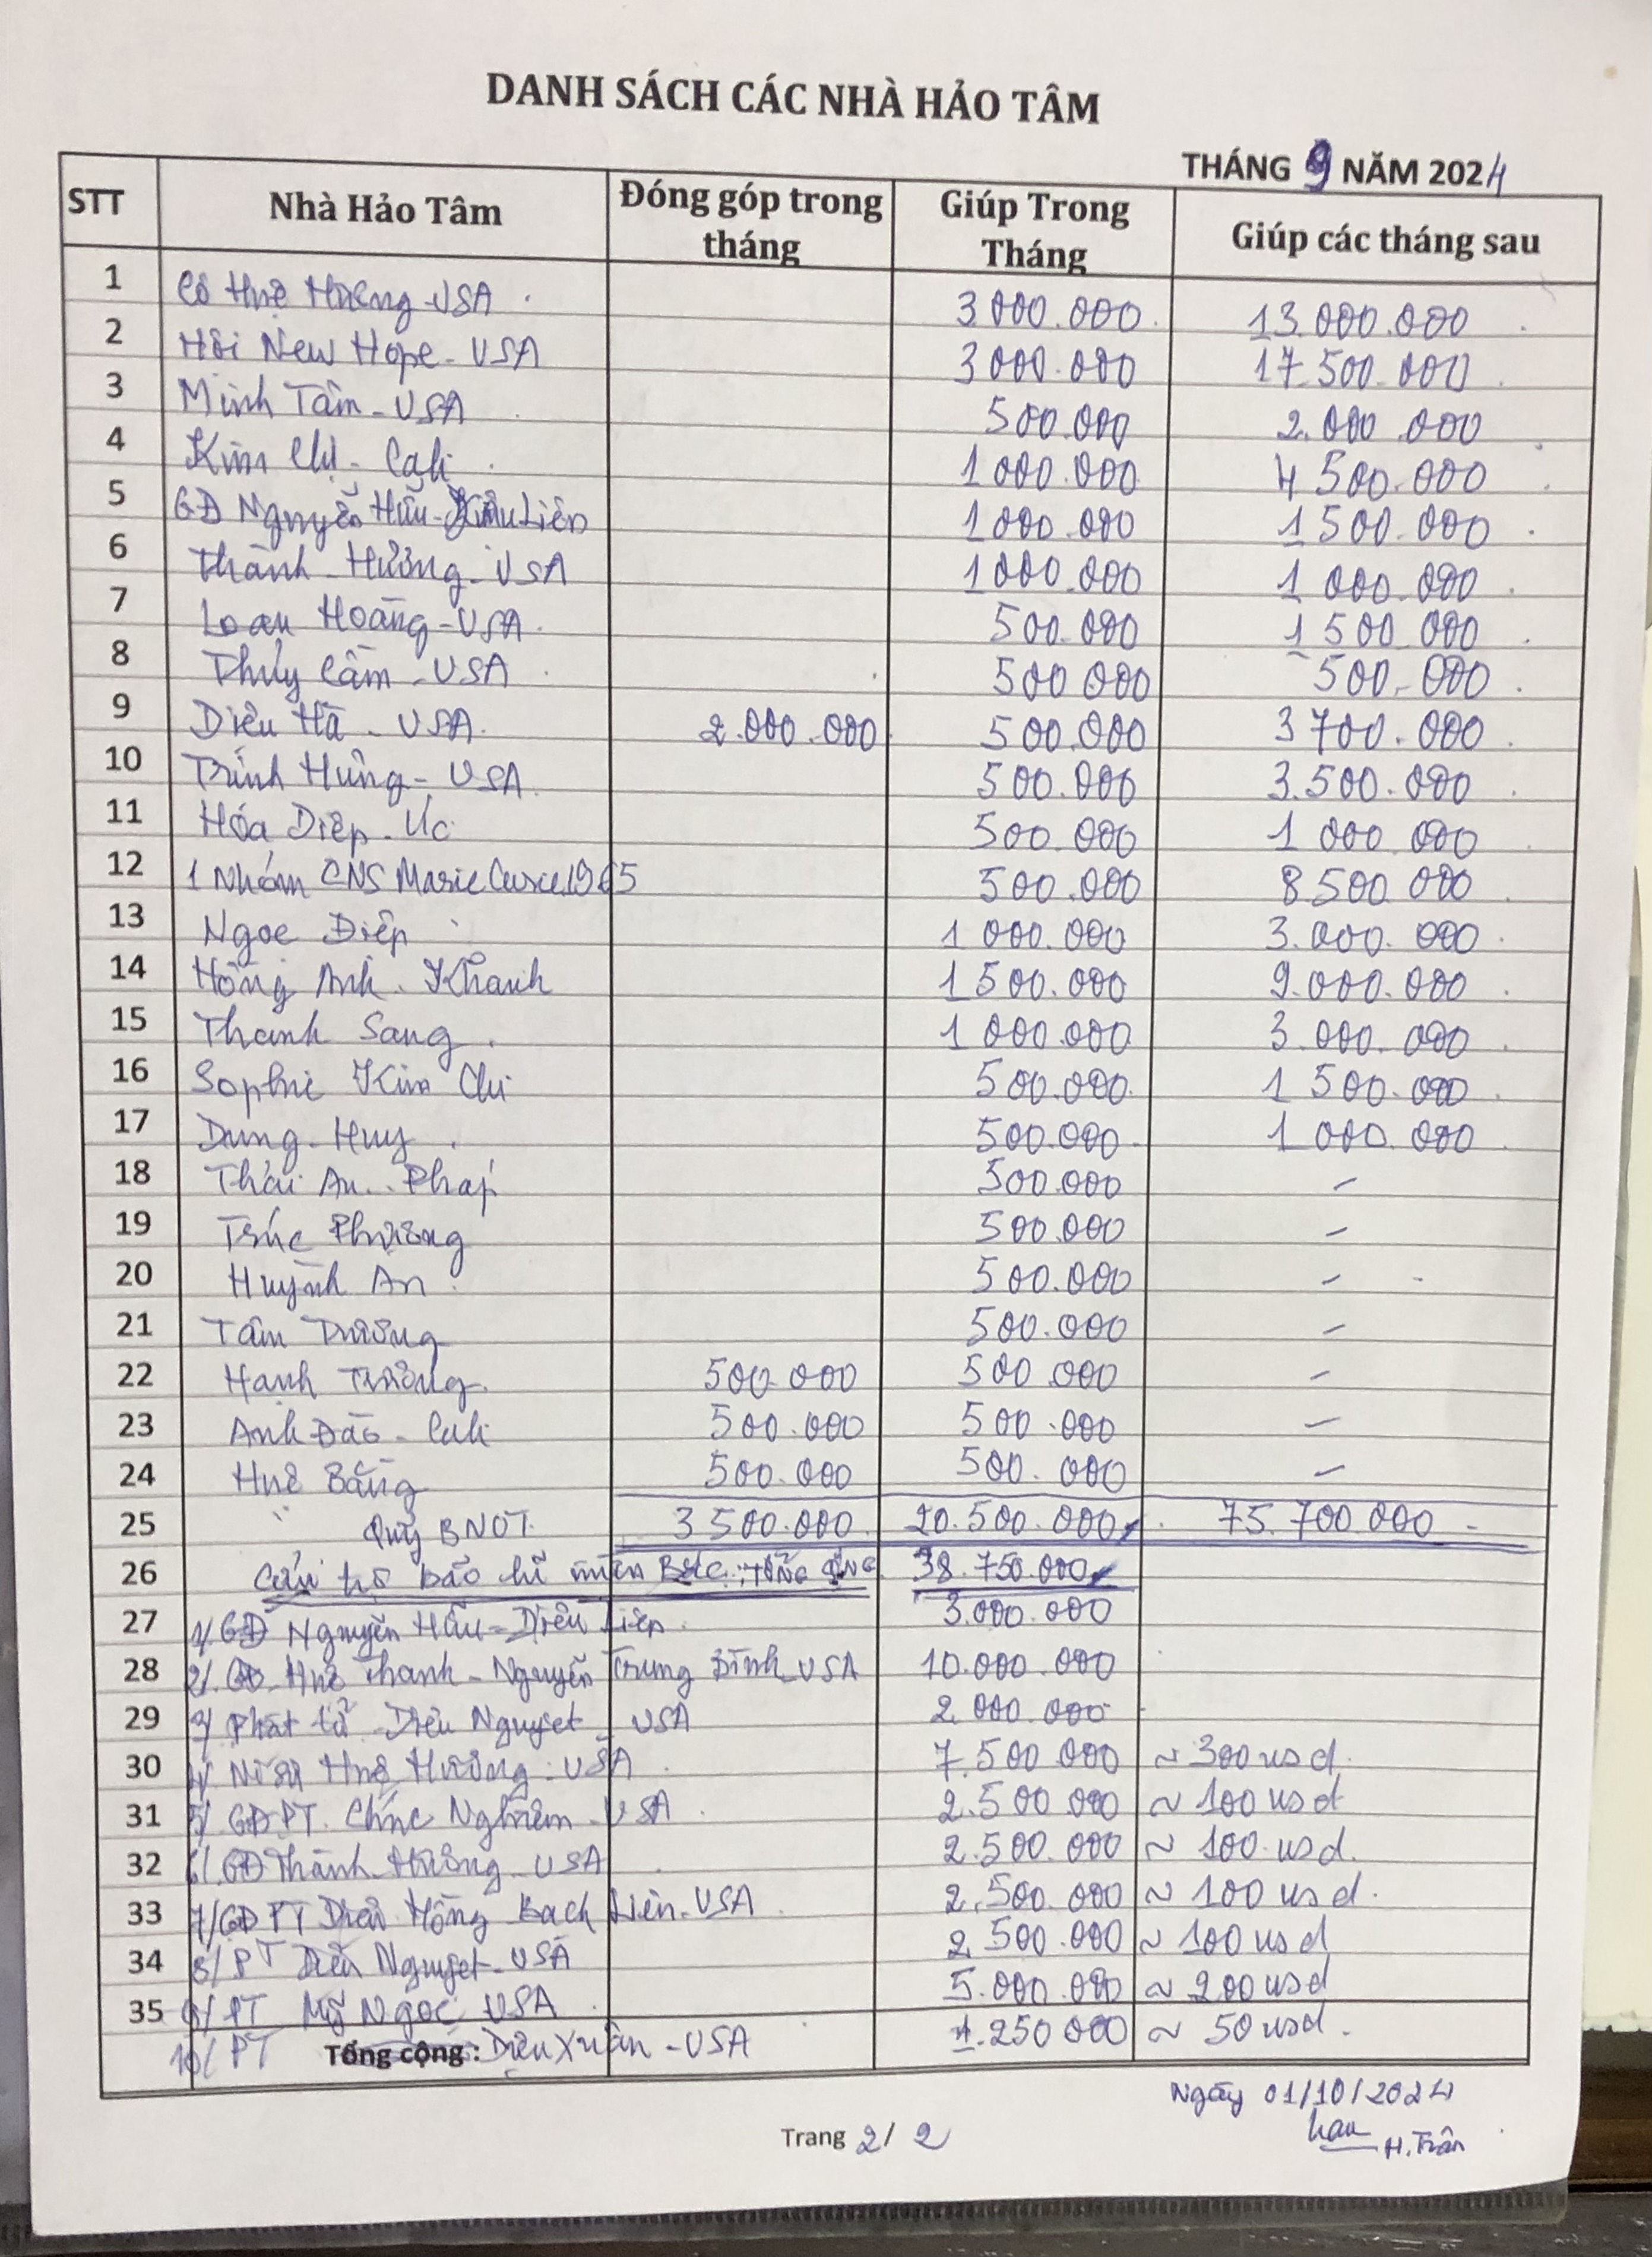 DANH SÁCH CÁC NHÀ HẢO TÂM
THÁNG 9 NĂM 2024
STT Nhà Hảo Tâm Đóng góp trong tháng Giúp Trong Tháng Giúp các tháng sau
1 Cô Huệ Hương - USA 3.000.000 13.000.000
2 Hội New Hope - USA 3.000.000 17.500.000
3 Minh Tâm - USA 500.000 2.000.000
4 Kim Chi - Cali 1.000.000 4.500.000
5 GĐ Nguyễn Hữu - Liên 1.000.000 1.500.000
6 Thành - Hương - USA 1.000.000 1.000.000
7 Loan Hoàng - USA 500.000 1.500.000
8 Thủy Cầm - USA 500.000 500.000
9 Diệu Hà - USA 2.000.000 500.000 3.700.000
10 Trinh Hưng - USA 500.000 3.500.000
11 Hóa Diệp - Úc 500.000 1.000.000
12 1 Nhóm CNS Marie Curie 1965 500.000 8.500.000
13 Ngọc Diệp 1.000.000 3.000.000
14 Hồng Anh - Khanh 1.500.000 9.000.000
15 Thanh Sang 1.000.000 3.000.000
16 Sophie Kim Chi 500.000 1.500.000
17 Dung - Huy 500.000 1.000.000
18 Thái An - Pháp 500.000 -
19 Trúc Phương 500.000 -
20 Huỳnh An 500.000 -
21 Tâm Trương 500.000 -
22 Hạnh Trương 500.000 500.000 -
23 Anh Đào - Cali 500.000 500.000 -
24 Huê Bằng 500.000 500.000 -
25 Quỹ BNOT 3.500.000 20.500.000 75.700.000
26 Cứu trợ bão lũ miền Bắc: Tổng cộng 38.750.000
27 1/ GĐ Nguyễn Hữu - Diệu Liên 3.000.000
28 2/ GĐ Huê Thanh - Nguyễn Trung Bình - USA 10.000.000
29 3/ Phật tử Diệu Nguyệt - USA 2.000.000
30 4/ Ni sư Huệ Hương - USA 7.500.000 ~ 300 usd
31 5/ GĐPT Chúc Nghiêm - USA 2.500.000 ~ 100 usd
32 6/ GĐ Thành Hương - USA 2.500.000 ~ 100 usd.
33 7/ GĐ PT Diệu Hồng Bạch Liên - USA 2.500.000 ~ 100 usd.
34 8/ PT Diệu Nguyệt - USA 2.500.000 ~ 100 usd
35 9/ PT Mỹ Ngọc USA 5.000.000 ~ 200 usd
10/ PT Tổng cộng : Diệu Xuân - USA 1.250.000 ~ 50 usd.
Ngày 01/10/2024
H. Trân
Trang 2/ 2